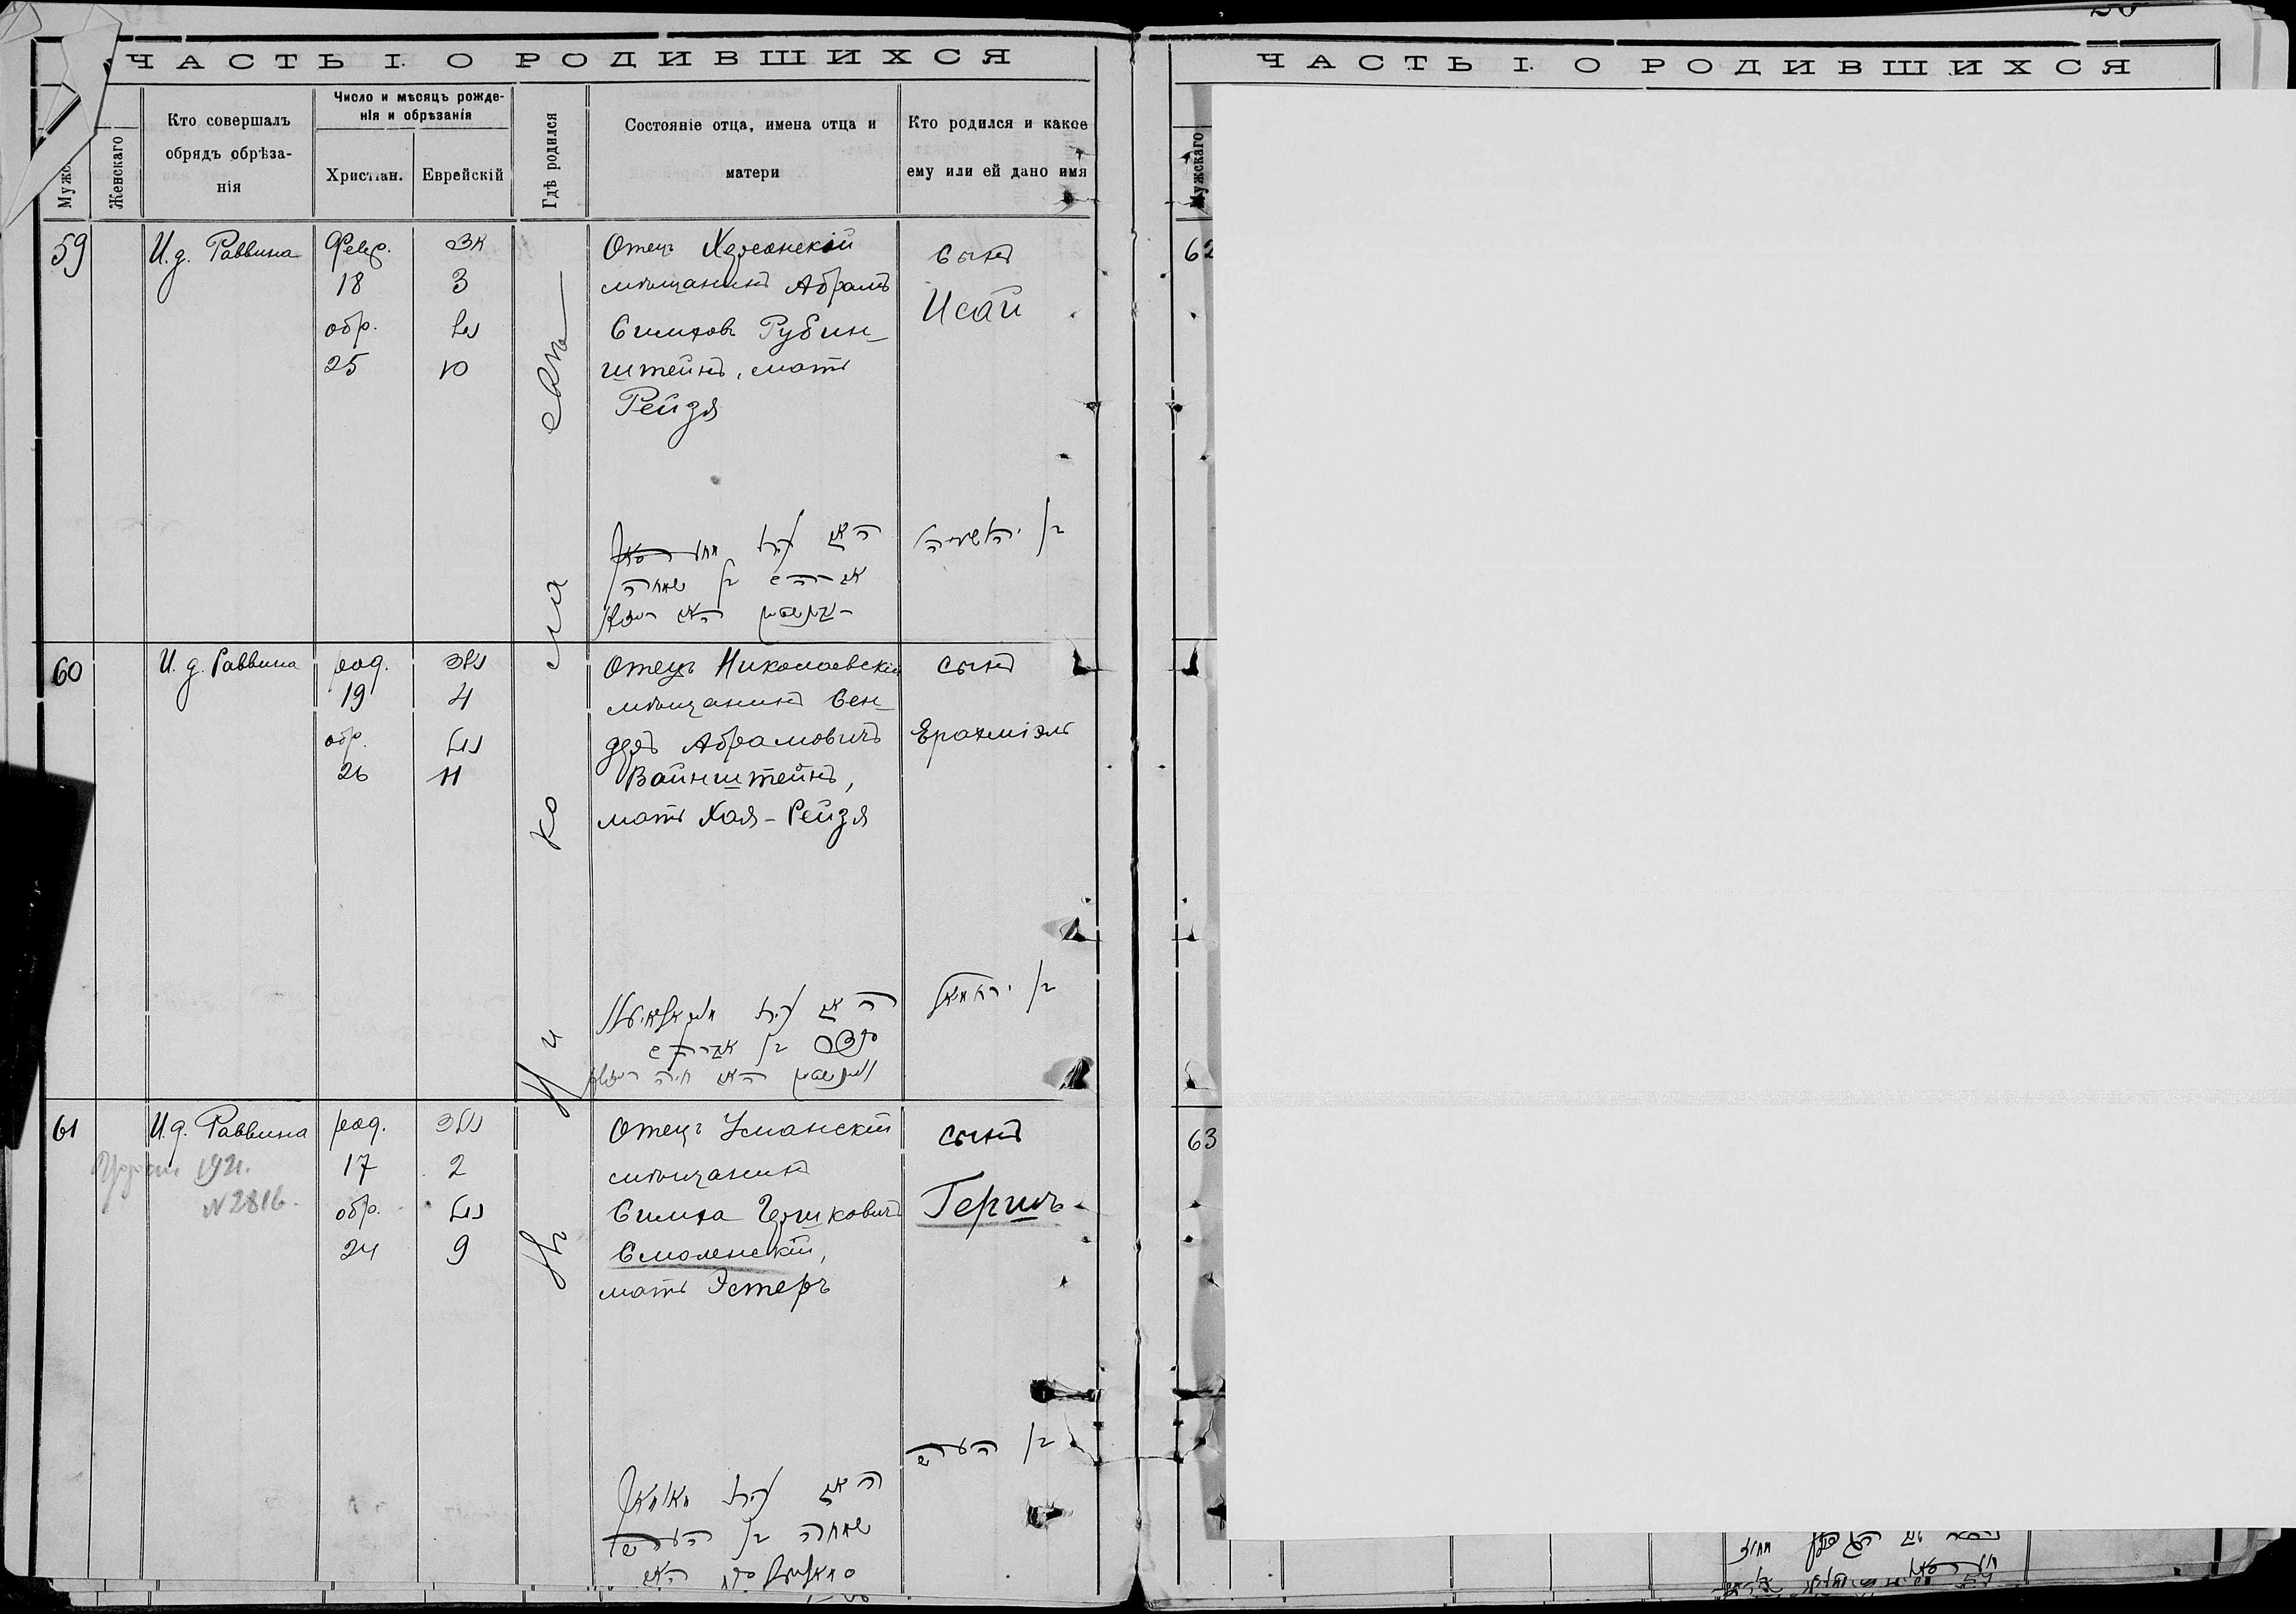 ЧАСТЬ I. О РОДИВШИХСЯ
Женскаго
Кто совершалъ
обрядъ обрѣза-
нія
Число и мѣсяцъ рожде-
нія и обрѣзанія
Христіан.
Еврейскій
Гдѣ родился
Состояніе отца, имена отца и
матери
Кто родился и какое
ему или ей дано имя
59
И. д. Раввина
Февр.
18
3
обр.
25
10
Отецъ Херсонскій
мѣщанинъ Абрамъ
Симховъ Рубин-
штейнъ, мать
Рейзя
сынъ
Исай
בן
Николаевѣ
60
И. д. Раввина
род.
19
4
обр.
26
11
Отецъ Николаевскій
мѣщанинъ Бен-
деръ Абрамовичъ
Вайнштейнъ,
мать Хая-Рейзя
сынъ
Ерахміэль
בן ירחמיאל
61
И. д. Раввина
1921.
№ 2816.
род.
17
2
обр.
24
9
Отецъ Уманскій
мѣщанинъ
Симха Гершковичъ
Смоленскій,
мать Эстеръ
сынъ
Гершъ
בן הערש
שמחה בן הערש
ЧАСТЬ I. О РОДИВШИХСЯ
Мужскаго
62
63